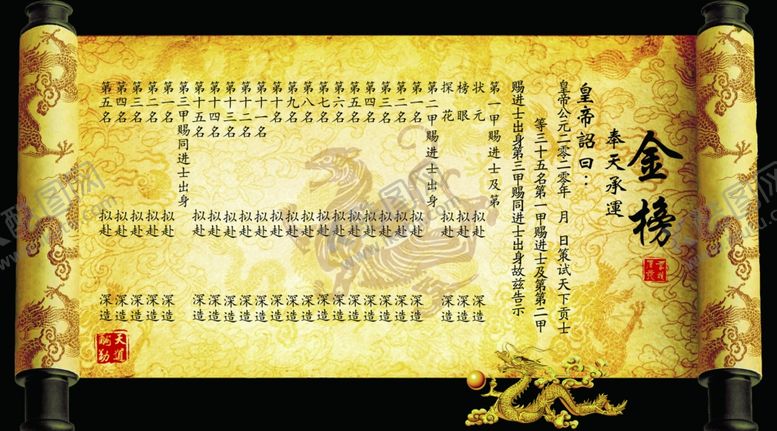 金榜
奉天承運
皇帝詔曰：
皇帝公元二〇二〇年 月 日策試天下貢士
等三十五名第一甲賜進士及第第二甲
賜進士出身第三甲賜同進士出身故兹告示
第一甲賜進士及第
状元 拟赴 深造
榜眼 拟赴 深造
探花 拟赴 深造
第二甲賜進士出身
第一名 拟赴 深造
第二名 拟赴 深造
第三名 拟赴 深造
第四名 拟赴 深造
第五名 拟赴 深造
第六名 拟赴 深造
第七名 拟赴 深造
第八名 拟赴 深造
第九名 拟赴 深造
第十名 拟赴 深造
第十一名 拟赴 深造
第十二名 拟赴 深造
第十三名 拟赴 深造
第十四名 拟赴 深造
第十五名 拟赴 深造
第三甲賜同進士出身
第一名 拟赴 深造
第二名 拟赴 深造
第三名 拟赴 深造
第四名 拟赴 深造
第五名 拟赴 深造
天道
酬勤